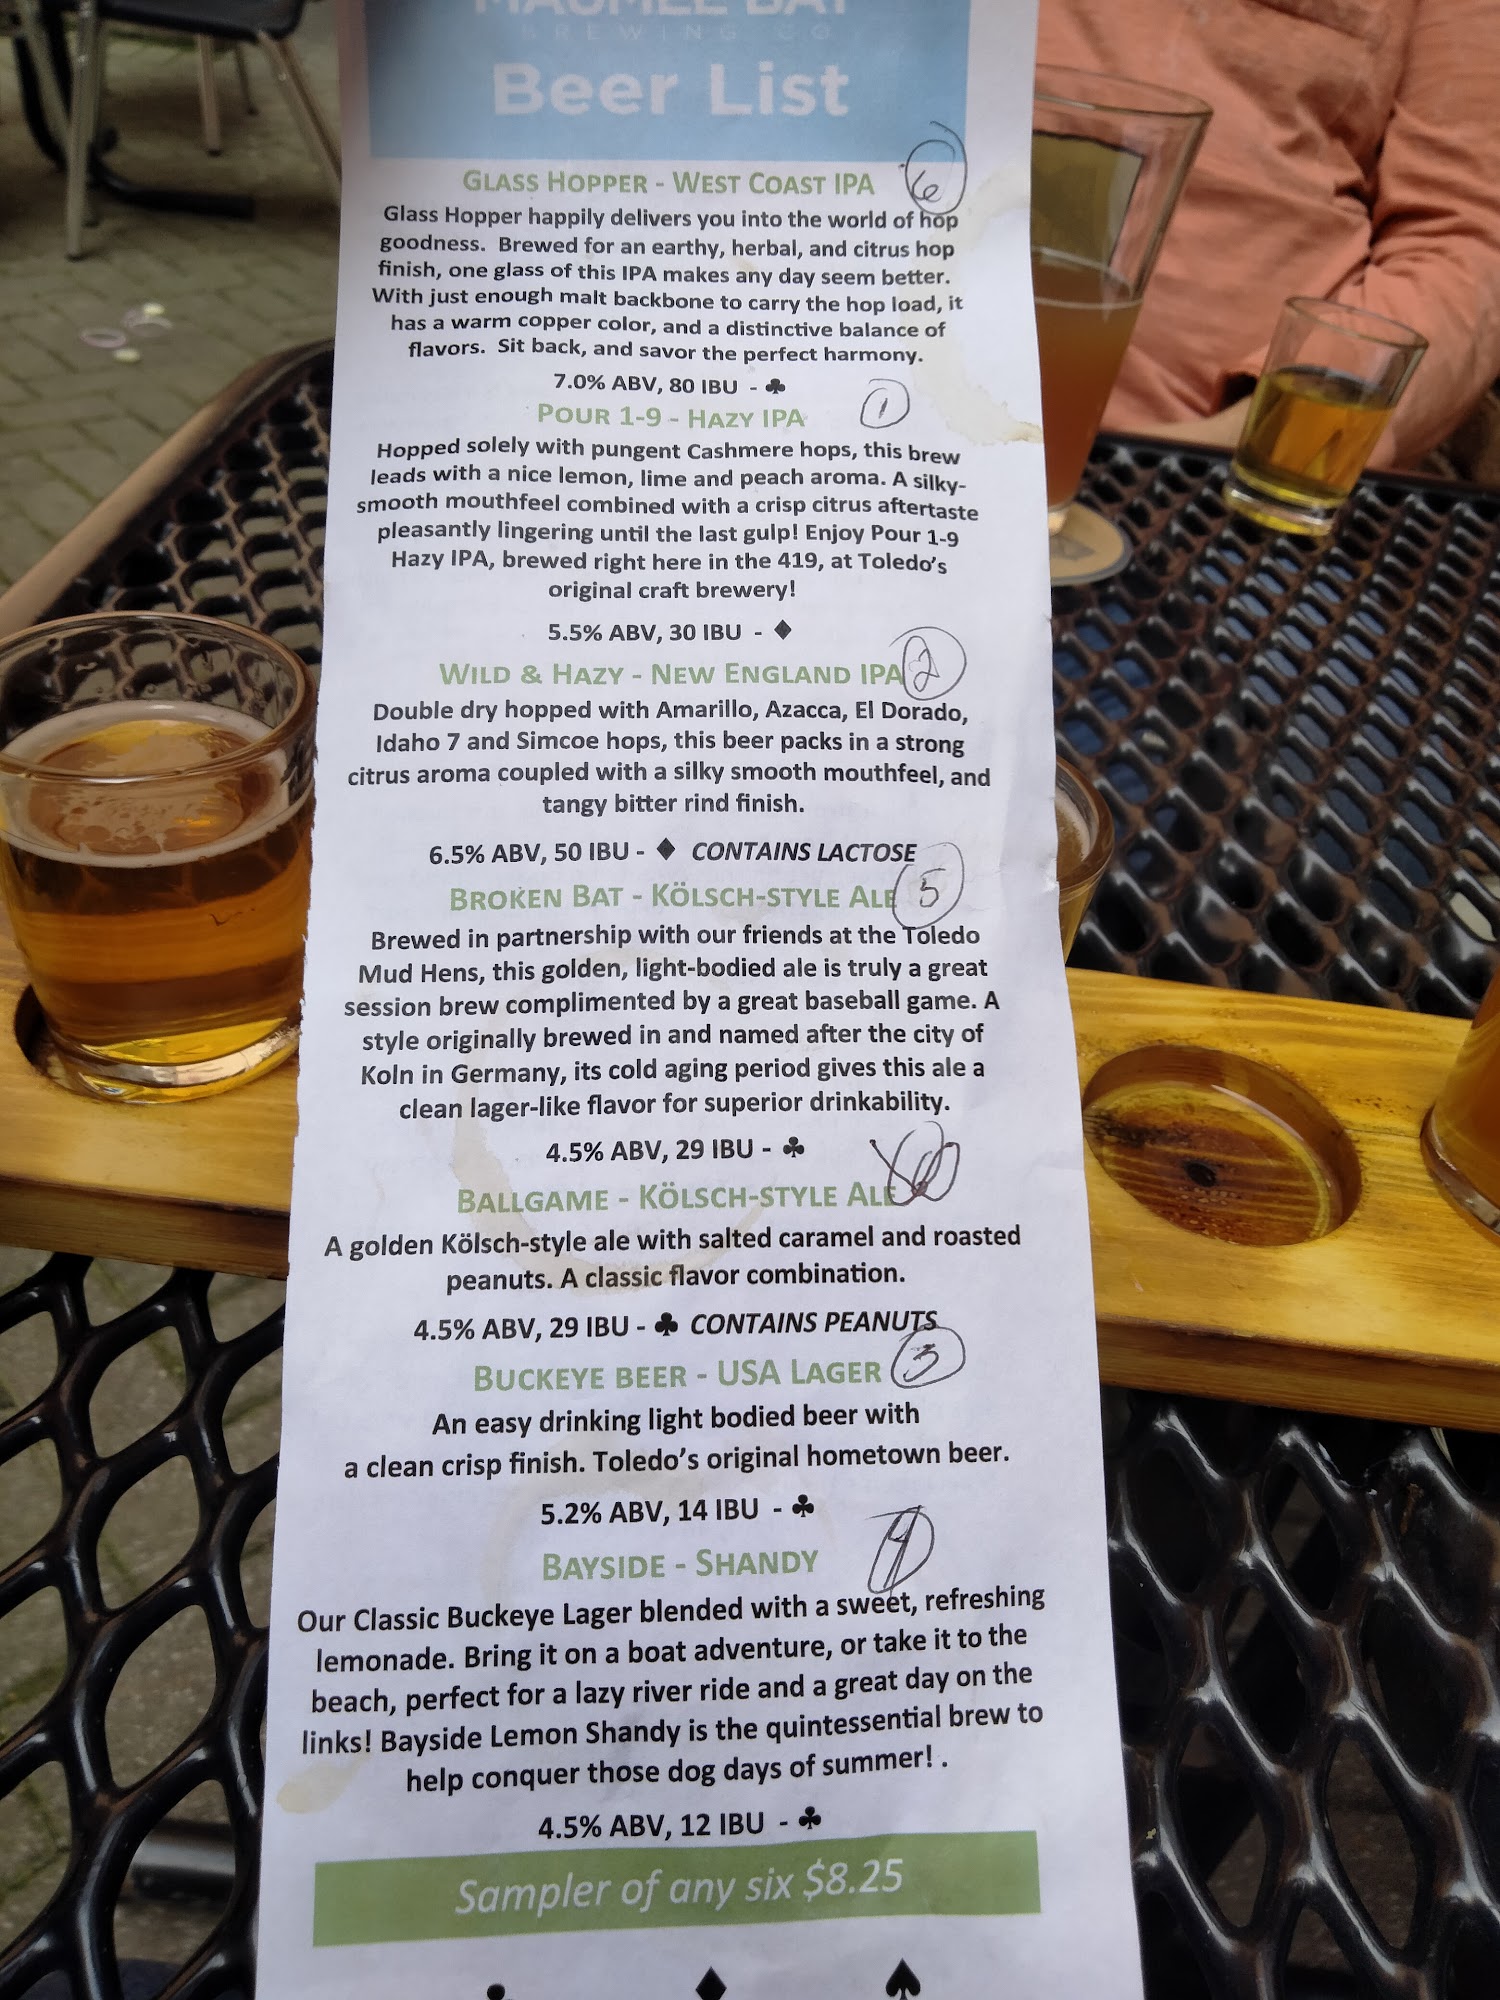 MAUMEE BAY
BREWING CO
Beer List
GLASS HOPPER - WEST COAST IPA 6
Glass Hopper happily delivers you into the world of hop
goodness. Brewed for an earthy, herbal, and citrus hop
finish, one glass of this IPA makes any day seem better.
With just enough malt backbone to carry the hop load, it
has a warm copper color, and a distinctive balance of
flavors. Sit back, and savor the perfect harmony.
7.0% ABV, 80 IBU - ♣
POUR 1-9 - HAZY IPA 1
Hopped solely with pungent Cashmere hops, this brew
leads with a nice lemon, lime and peach aroma. A silky-
smooth mouthfeel combined with a crisp citrus aftertaste
pleasantly lingering until the last gulp! Enjoy Pour 1-9
Hazy IPA, brewed right here in the 419, at Toledo's
original craft brewery!
5.5% ABV, 30 IBU - ♦
WILD & HAZY - NEW ENGLAND IPA 2
Double dry hopped with Amarillo, Azacca, El Dorado,
Idaho 7 and Simcoe hops, this beer packs in a strong
citrus aroma coupled with a silky smooth mouthfeel, and
tangy bitter rind finish.
6.5% ABV, 50 IBU - ♦ CONTAINS LACTOSE
BROKEN BAT - KÖLSCH-STYLE ALE 5
Brewed in partnership with our friends at the Toledo
Mud Hens, this golden, light-bodied ale is truly a great
session brew complimented by a great baseball game. A
style originally brewed in and named after the city of
Koln in Germany, its cold aging period gives this ale a
clean lager-like flavor for superior drinkability.
4.5% ABV, 29 IBU - ♣
BALLGAME - KÖLSCH-STYLE ALE
A golden Kölsch-style ale with salted caramel and roasted
peanuts. A classic flavor combination.
4.5% ABV, 29 IBU - ♣ CONTAINS PEANUTS
BUCKEYE BEER - USA LAGER
An easy drinking light bodied beer with
a clean crisp finish. Toledo's original hometown beer.
5.2% ABV, 14 IBU - ♣
BAYSIDE - SHANDY 4
Our Classic Buckeye Lager blended with a sweet, refreshing
lemonade. Bring it on a boat adventure, or take it to the
beach, perfect for a lazy river ride and a great day on the
links! Bayside Lemon Shandy is the quintessential brew to
help conquer those dog days of summer! .
4.5% ABV, 12 IBU - ♣
Sampler of any six $8.25